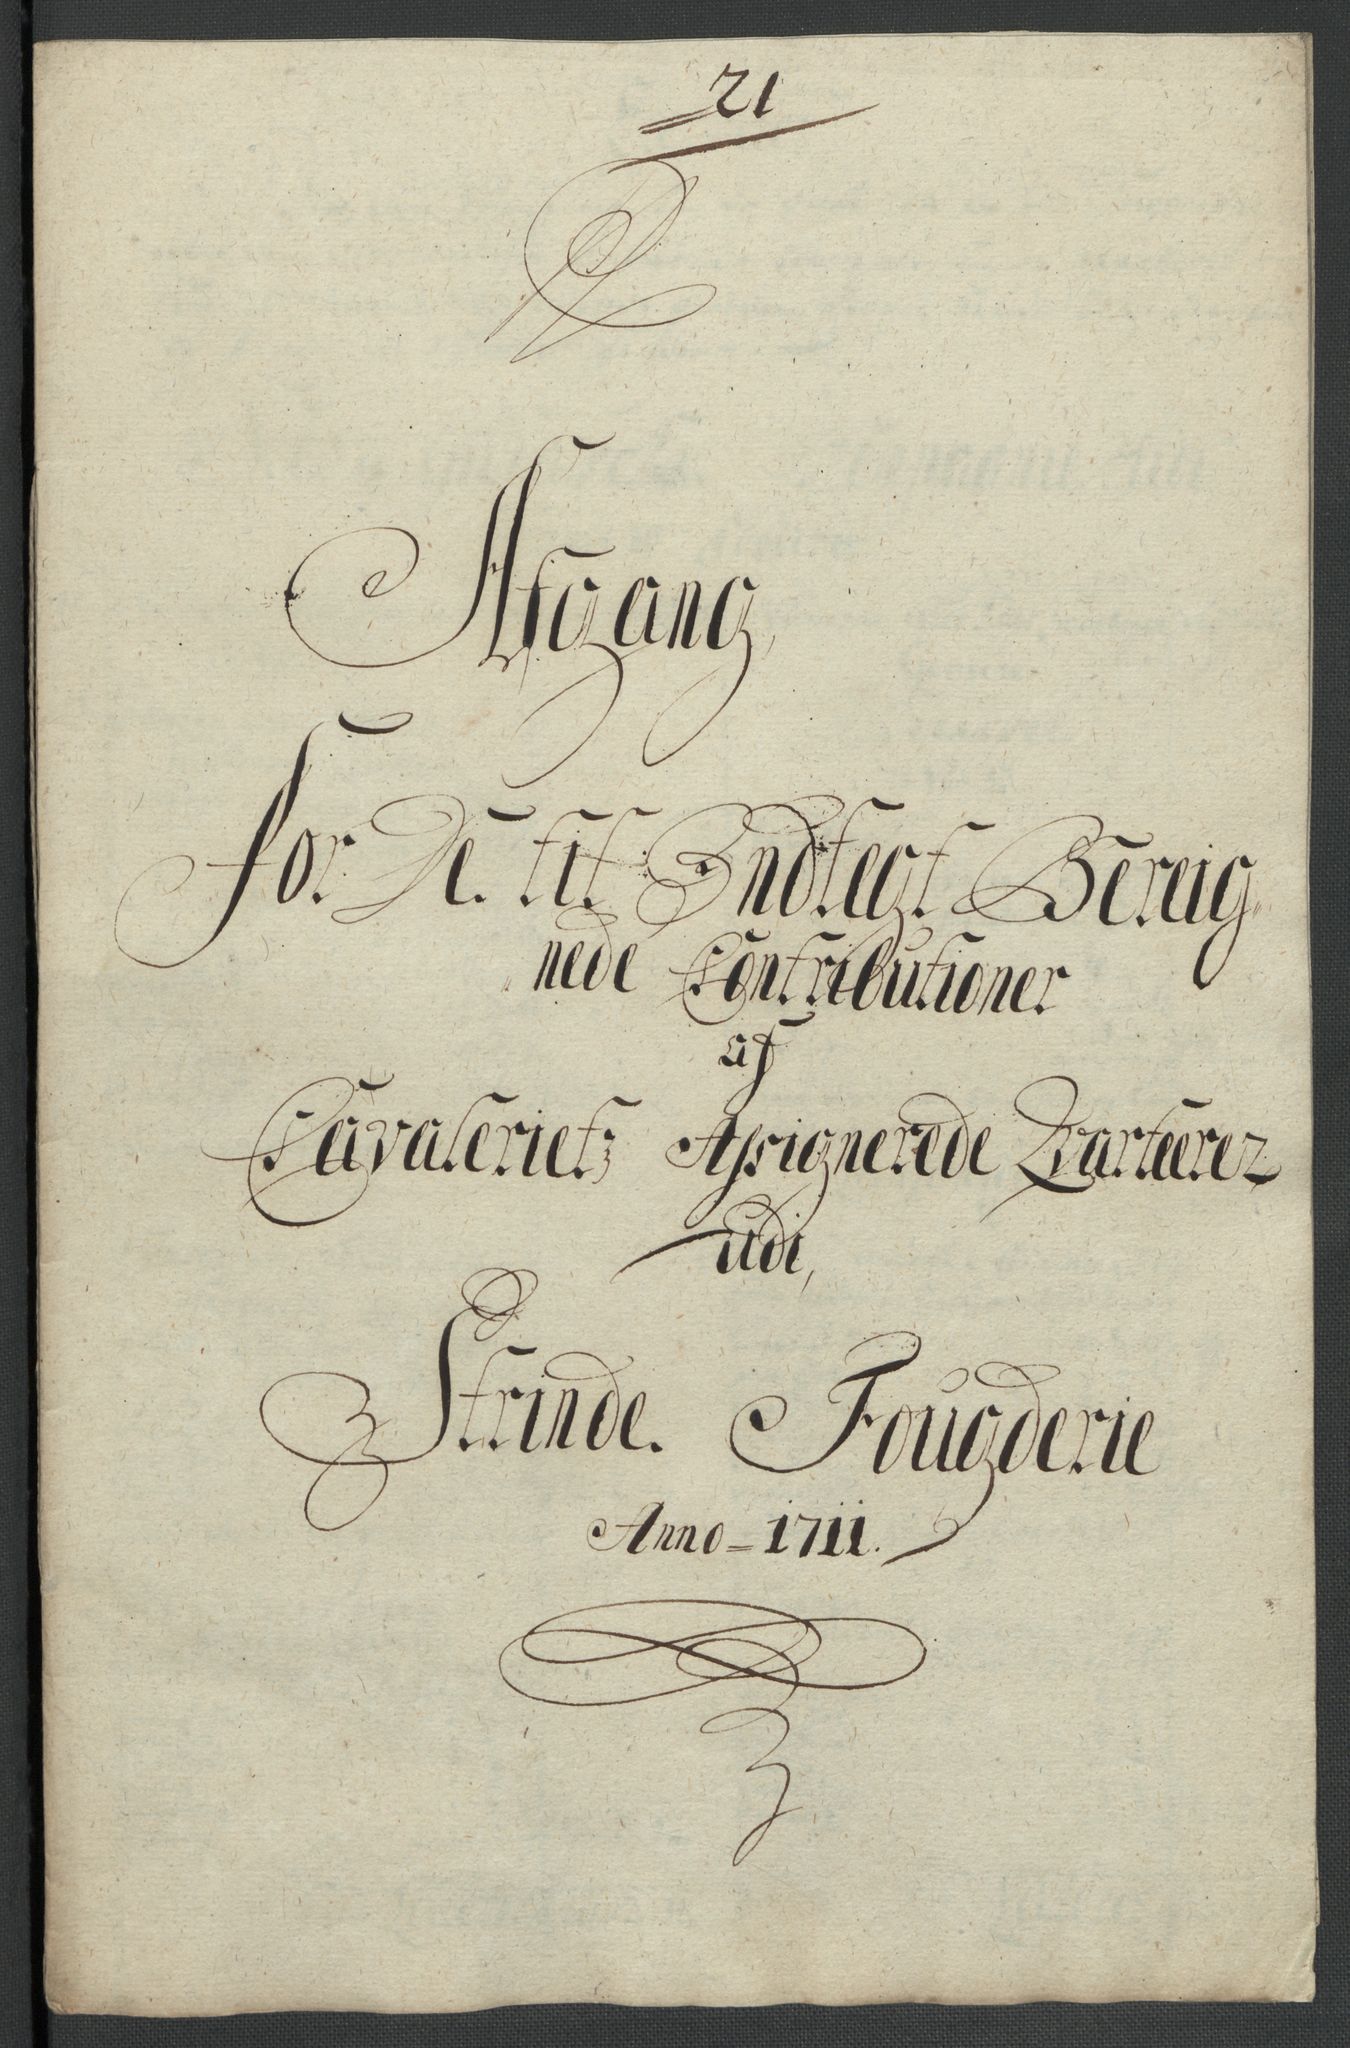 21
Afgang,
For De til Indtegt Bereig-
nede Contributioner
af
Cavaleriets Assignerede Qvarteerer
udi,
Strinde Fougderie
Anno - 1711.